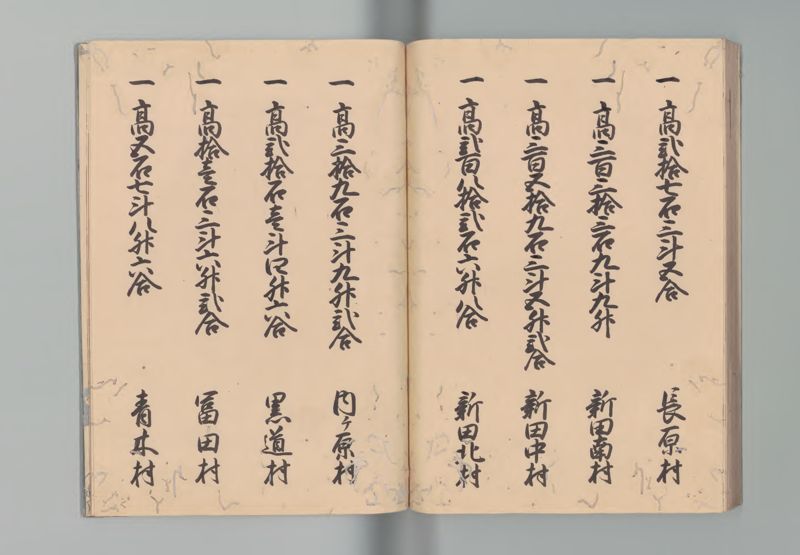 一 高弐拾七石三斗五合 長原村
一 高三百三拾三石九斗九升 新田南村
一 高三百五拾九石三斗五升弐合 新田中村
一 高弐百八拾弐石六升八合 新田北村
一 高三拾九石三斗九升弐合 内ヶ原村
一 高弐拾石壱斗四升六合 黒道村
一 高拾壱石三斗六升弐合 冨田村
一 高五石七斗八升六合 青木村